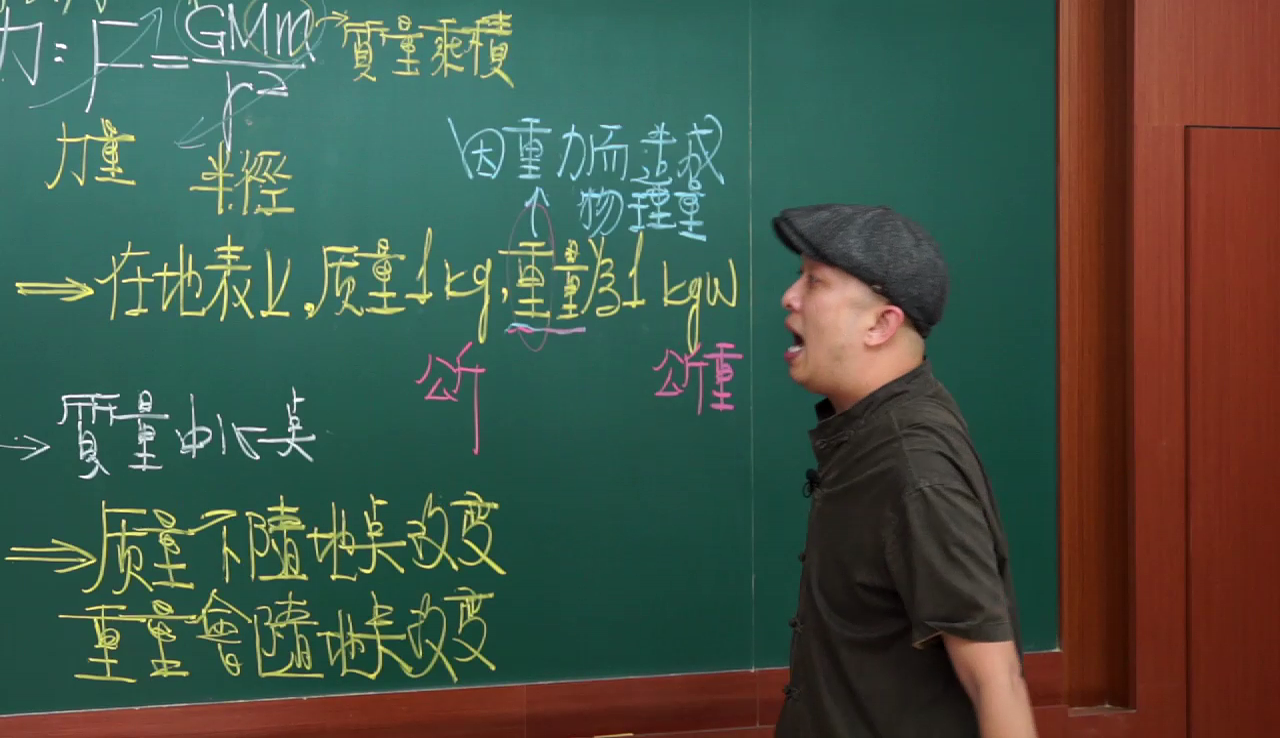 力：F=GMm/r² → 質量乘積
力量
半徑
因重力而造成
物理量
⇒在地表上,质量1kg,重量為1kgw
公斤
公斤重
→質量中心点
⇒质量不隨地点改变
重量會隨地点改变